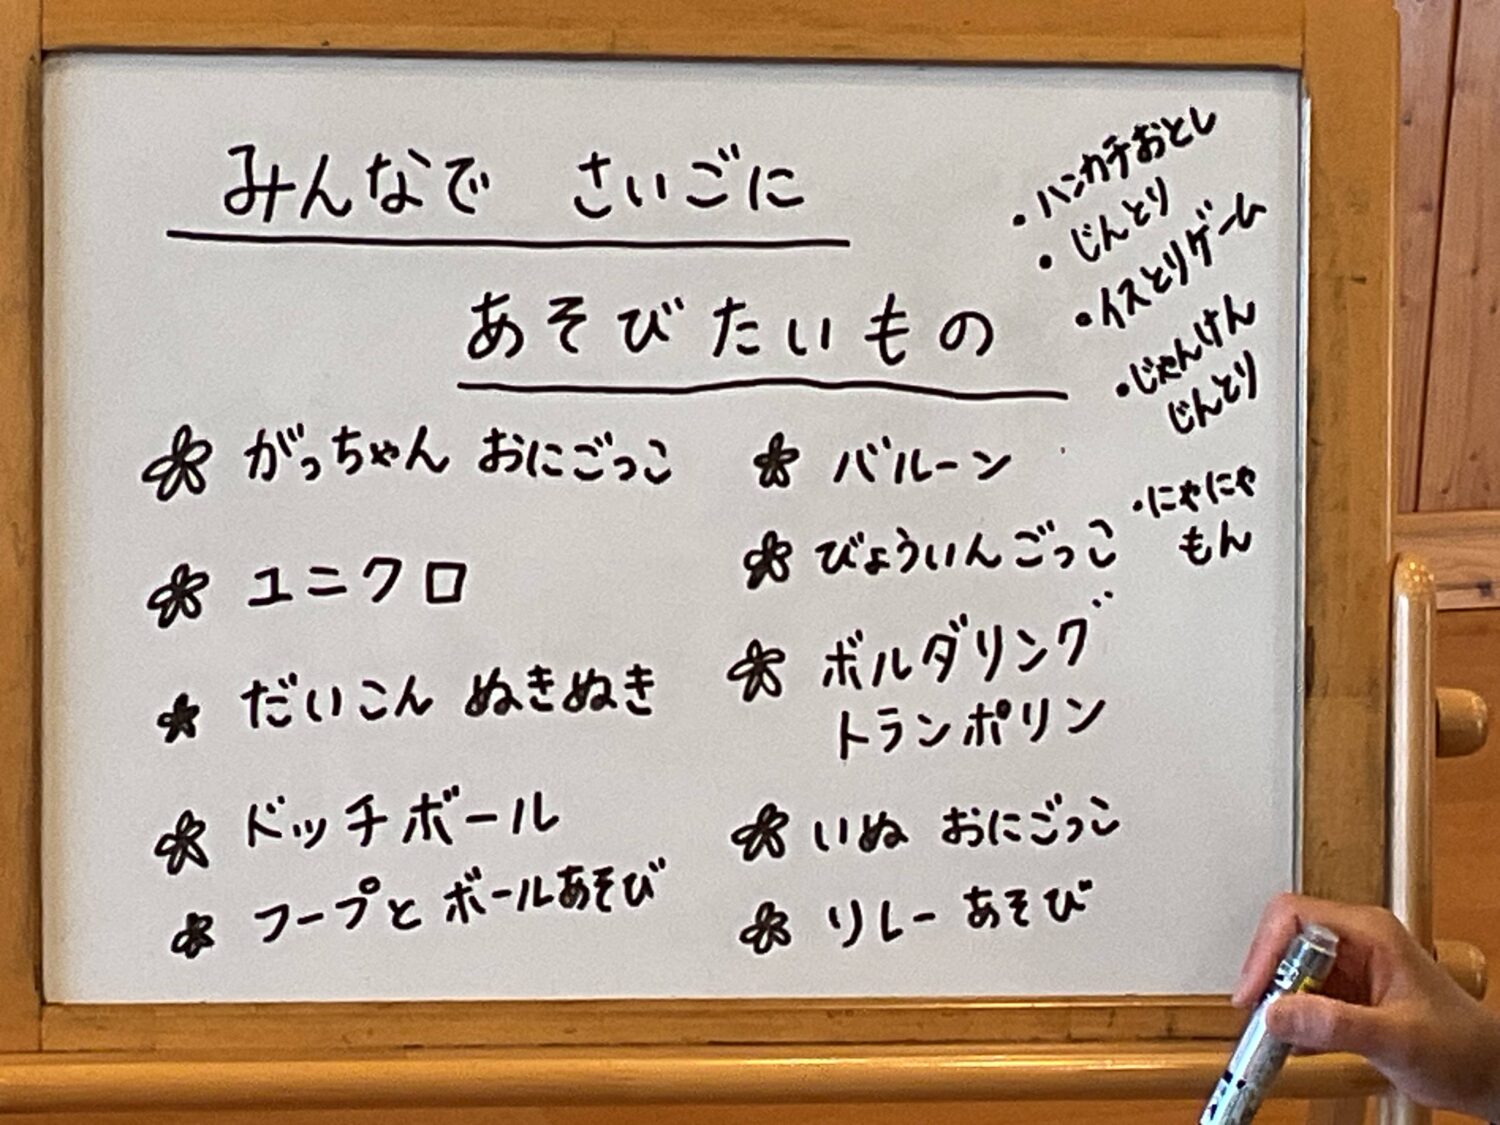 みんなで さいごに
あそびたいもの
がっちゃん おにごっこ
ユニクロ
だいこん ぬきぬき
ドッチボール
フープと ボールあそび
バルーン
びょういんごっこ
ボルダリング
トランポリン
いぬ おにごっこ
リレー あそび
・ハンカチおとし
・じんとり
・イスとりゲーム
・じゃんけん
じんとり
・にゃにゃ
もん